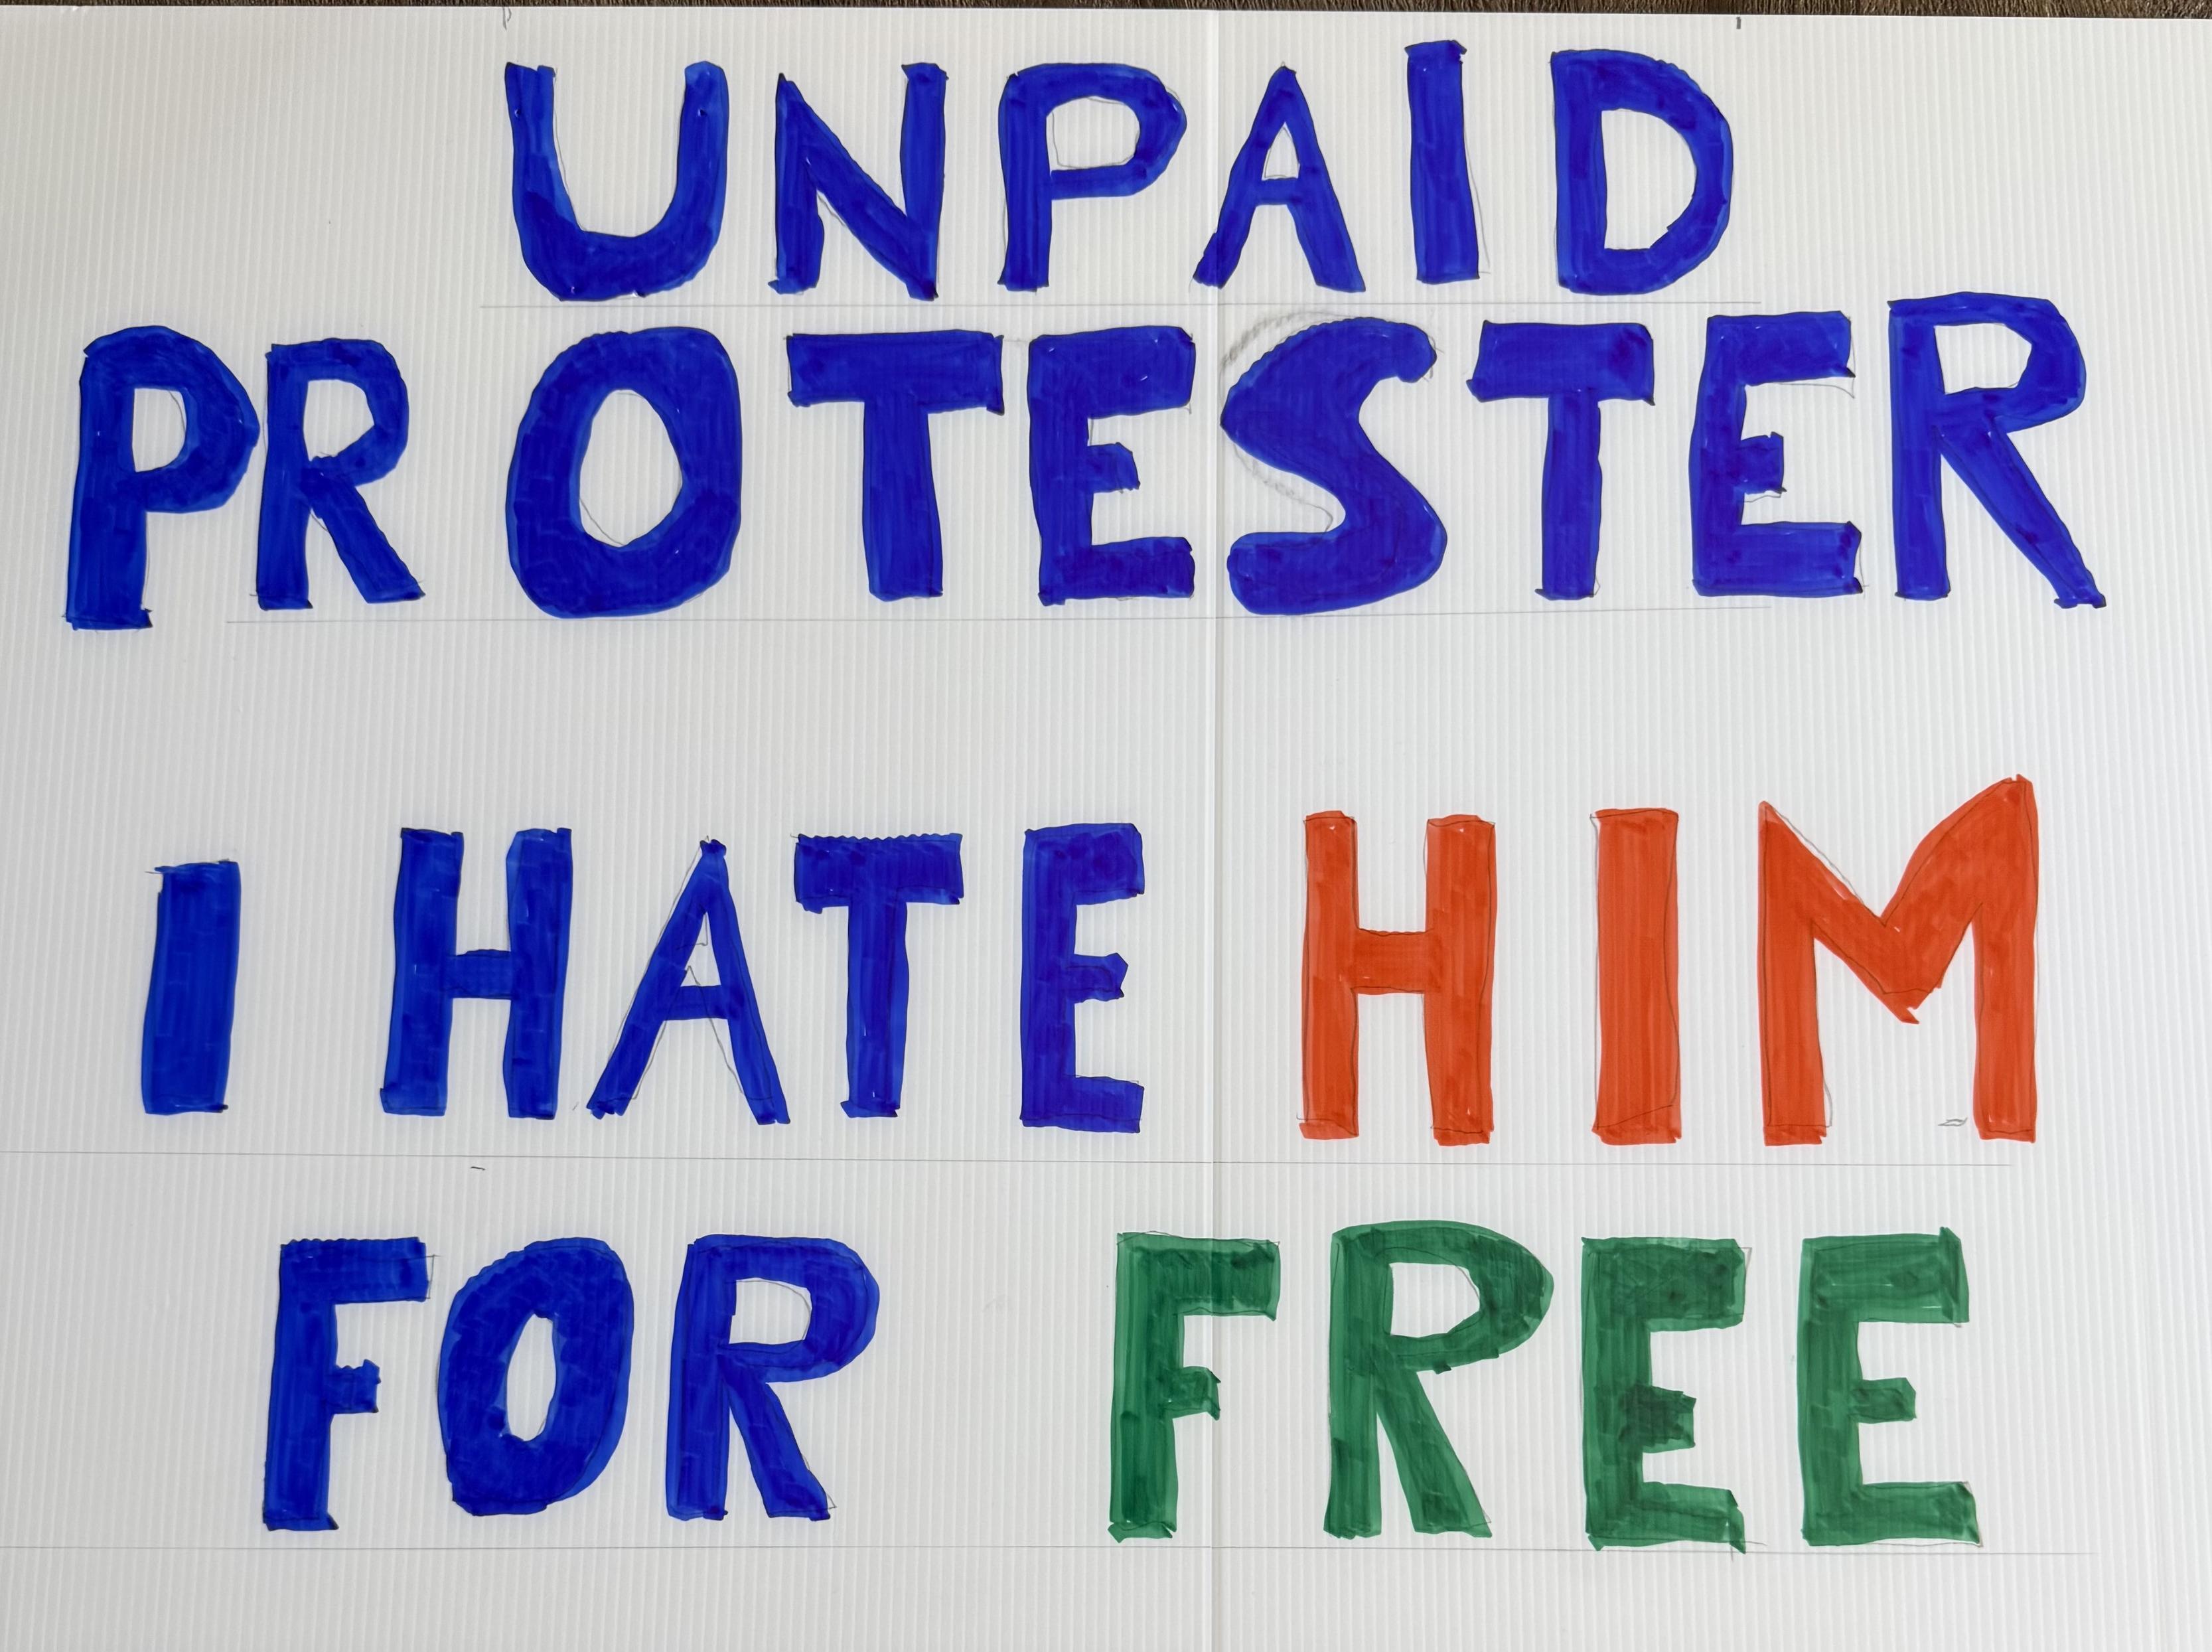 UNPAID
PROTESTER
I HATE HIM
FOR FREE